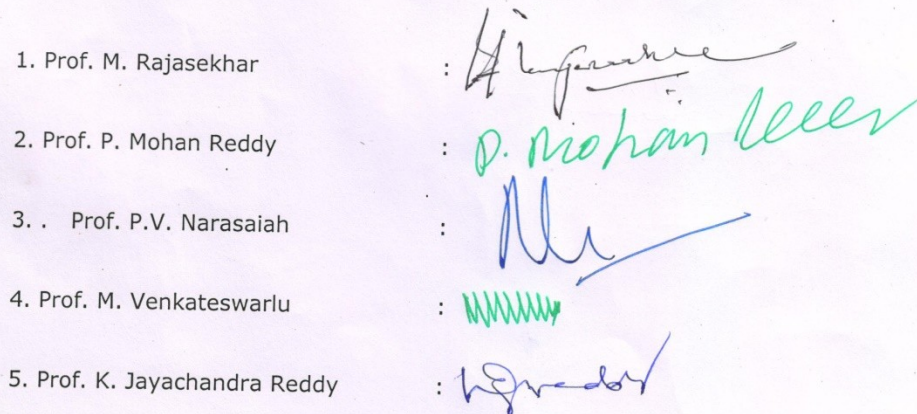 1. Prof. M. Rajasekhar :
2. Prof. P. Mohan Reddy : P. Mohan Reddy
3. . Prof. P.V. Narasaiah :
4. Prof. M. Venkateswarlu :
5. Prof. K. Jayachandra Reddy :